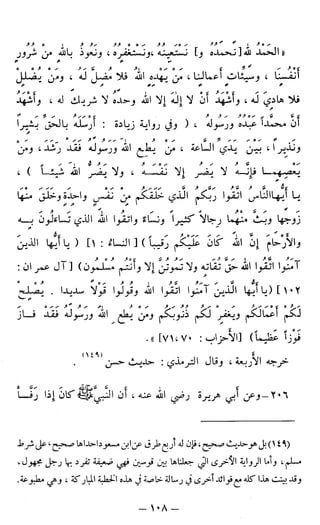 « الْحَمْدُ لله [ نَحْمَدُهُ و ] نَسْتَعِينُهُ ، ونَسْتَغْفِرُهُ ، ونَعُوذُ بالله مِنْ شُرُورِ
أَنْفُسِنَا ، وسَيِّئَاتِ أعمالنا ، مَنْ يَهْدِهِ اللهُ فلا مُضِلَّ لَهُ ، ومَنْ يُضْلِلْ
فلا هادِيَ لَه ، وأَشْهَدُ أَنْ لا إلهَ إلا الله وحدَهُ لا شريكَ له ، وأَشْهَدُ
أنَّ محمَّداً عبْدُهُ ورَسُولُه ، ( وفي رواية زيادة : أَرْسَلَهُ بالحَقِّ بَشِيراً
ونَذِيراً ، بَيْنَ يَدَيِ السَّاعَة ، مَنْ يُطِعِ اللهَ ورَسُولَهُ فَقَدْ رَشَدَ ، ومَنْ
يَعْصِهِما فإِنَّهُ لا يَضُرُّ إلا نَفْسَهُ ، ولا يَضُرُّ اللهَ شَيئاً ) ،
يا أَيُّهاالنَّاسُ اتَّقُوا رَبَّكُم الَّذي خَلَقَكُم مِنْ نَفْسٍ واحِدَةٍ وخَلَقَ مِنْها
زَوجَها وبَثَّ مِنْهُما رِجالاً كثيراً ونِساءً واتقُوا اللهَ الذي تَساءَلُونَ بِـهِ
والأَرْحَامَ إِنَّ اللهَ كانَ عَلَيْكُم رَقِيباً ) [ النساء : ١ ] ( يا أَيُّها الذين
آمَنُوا اتَّقُوا اللهَ حَقَّ تُقَاتِهِ ولا تَمُوتُنَّ إلا وأَنْتُم مُسْلِمُون ) [ آل عمران :
١٠٢ ] ( يا أَيُّها الَّذينَ آمَنُوا اتَّقُوا اللهَ وقُولُوا قَوْلاً سديدا . يُصْلِحْ
لَكُمْ أَعْمَالَكُم ويَغْفِرْ لَكُم ذُنُوبَكُم ومَنْ يُطِعِ اللهَ ورَسُولَهُ فَقَدْ فَـازَ
فَوْزاً عَظِيماً ) [ الأحزاب : ٧٠ ، ٧١ ] » .
خرجه الأربعة ، وقال الترمذي : حديث حسن (١٤٩) .
٢٠٦ – وعن أبي هريرة رضي الله عنه ، أن النبيَّ ﷺ كَانَ إذا رَفَّـأَ
(١٤٩) بل هو حديث صحيح ، فإن له أربع طرق عن ابن مسعود احداها صحيح ، على شرط
مسلم ، وأما الرواية الأخرى التي جعلناها بين قوسين فهي ضعيفة تفرد بها رجل مجهول .
وقد بينت هذا كله مع فوائد أخرى في رسالة خاصة في هذه الخطبة المباركة ، وهي مطبوعة .
– ١٠٨ –